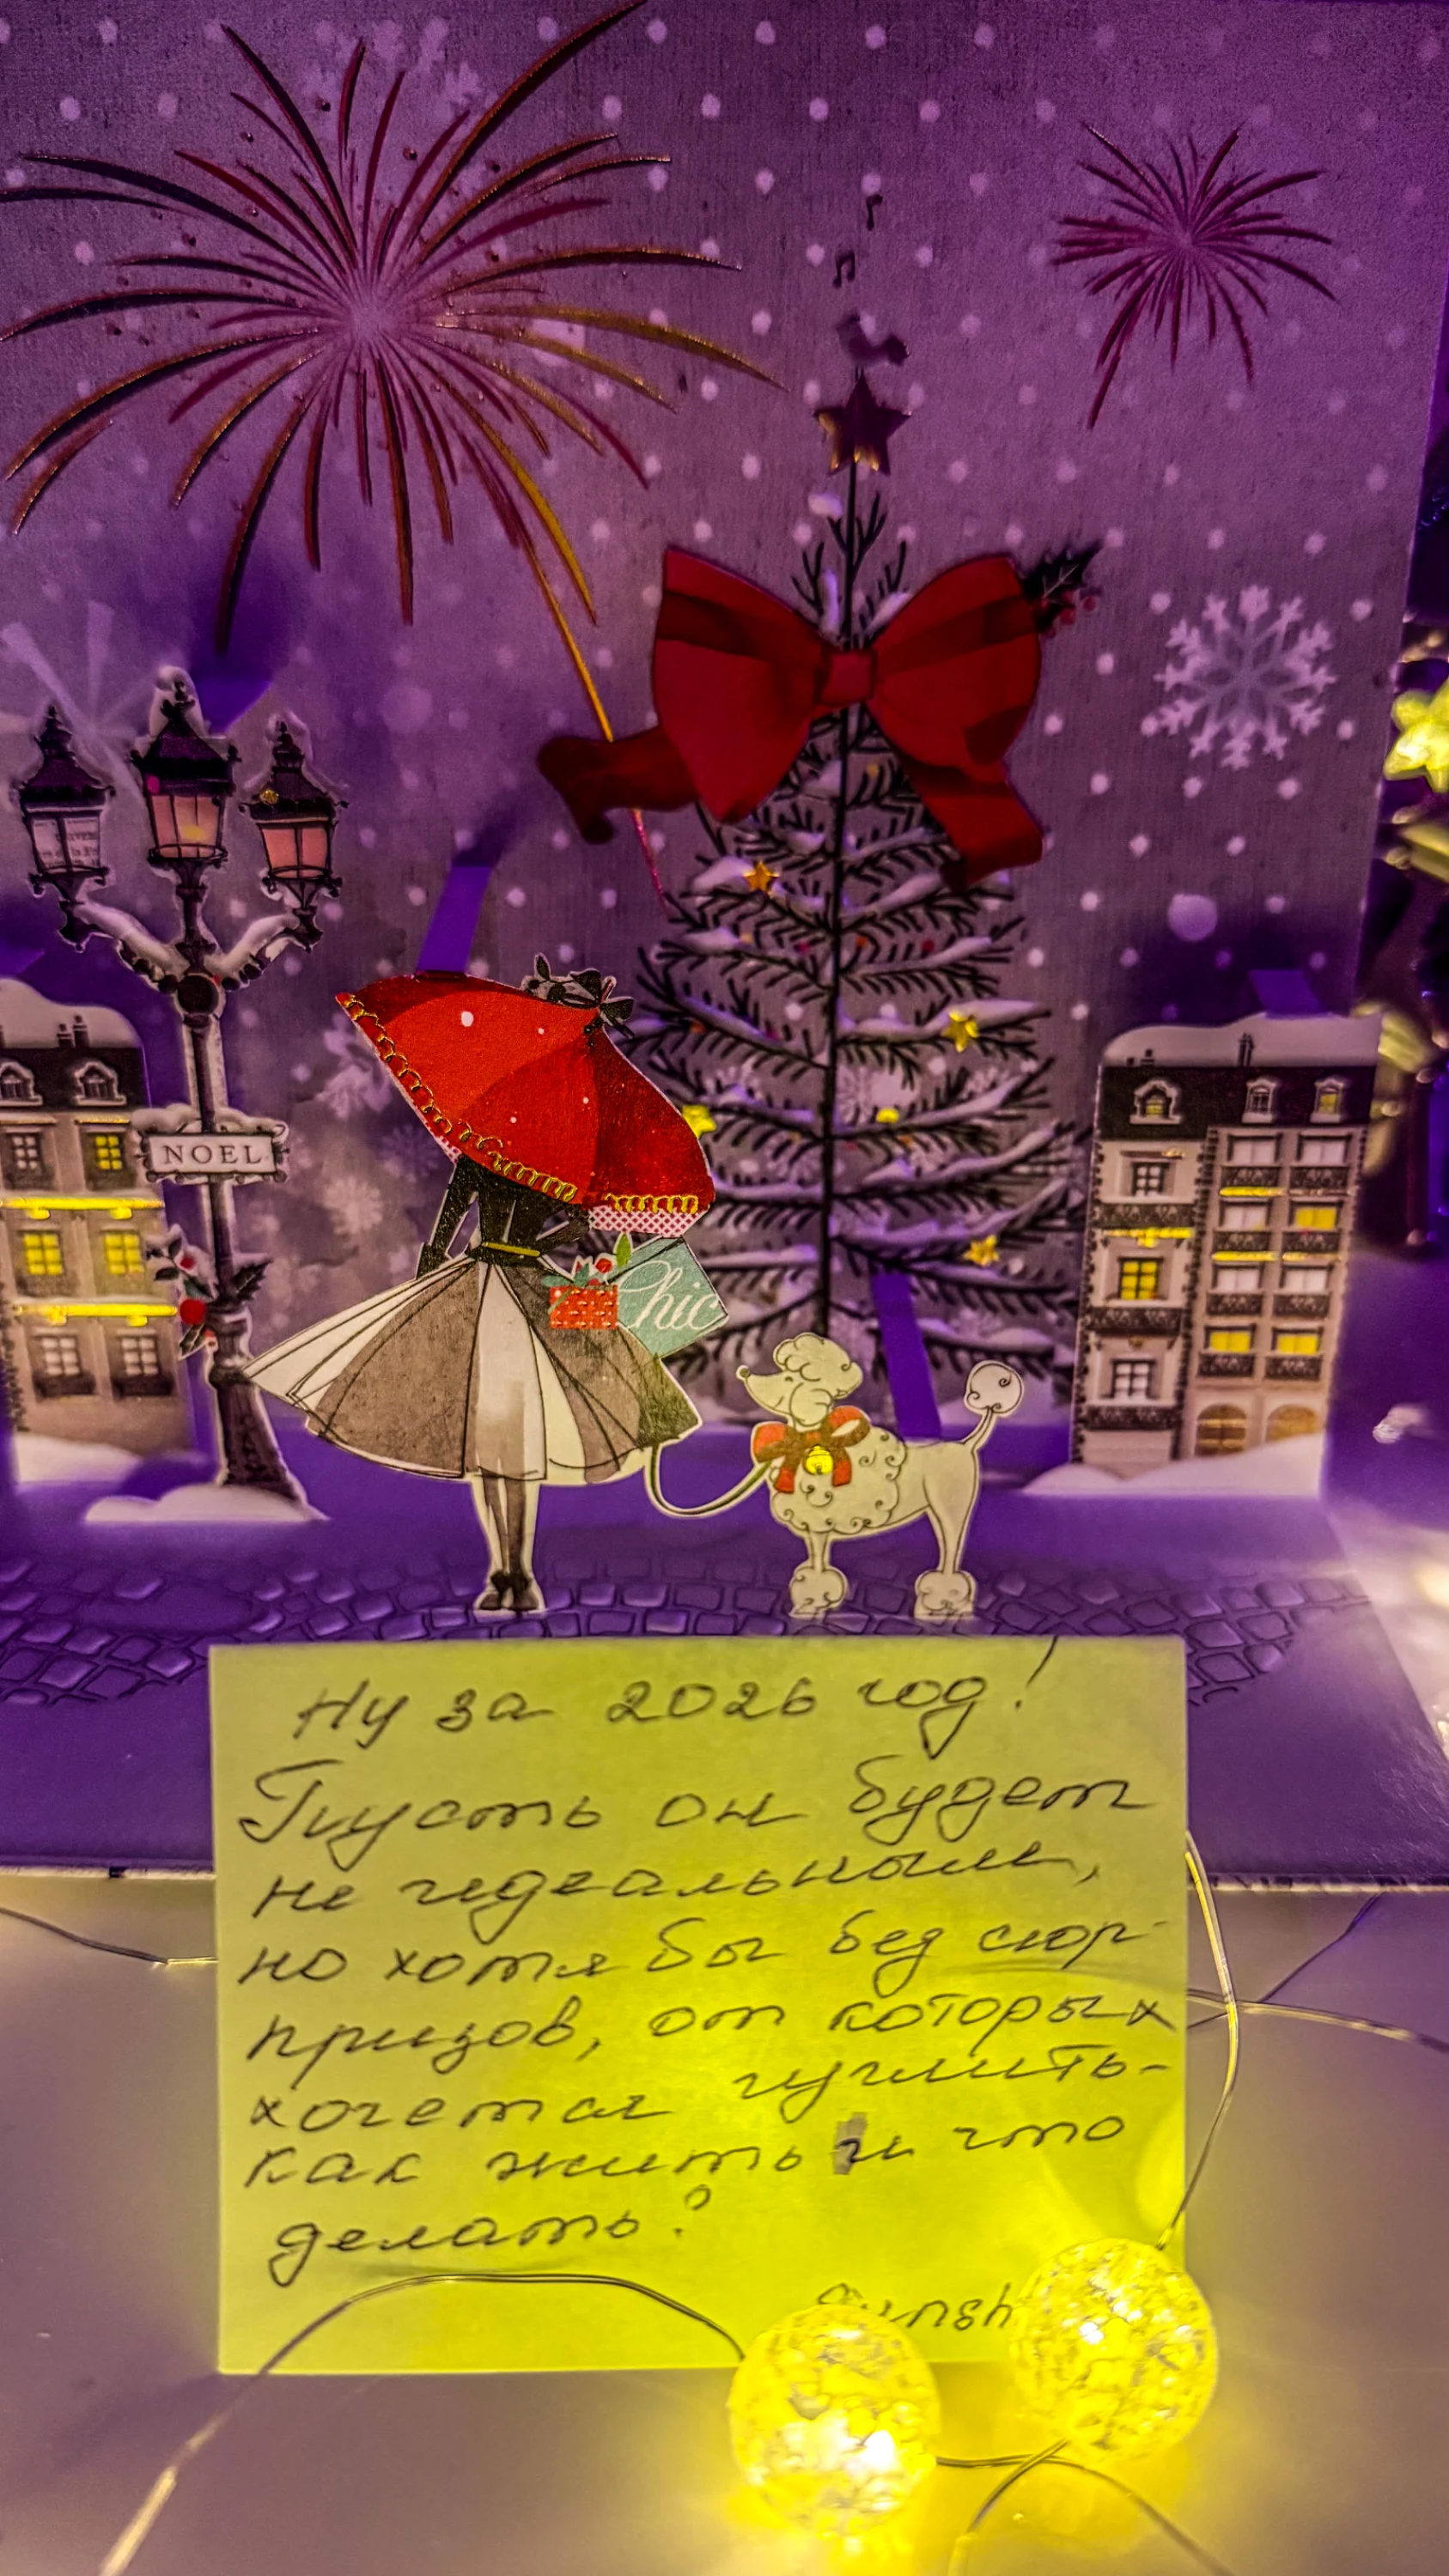 NOEL
Chic
Ну за 2026 год!
Пусть он будет
не идеальным,
но хотя бы без сюр-
призов, от которых
хочется гуглить-
как жить и что
делать?